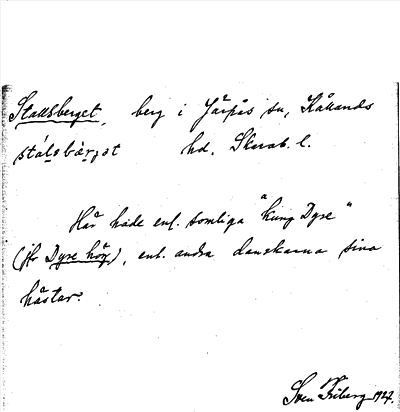 Stallsberget, berg i Järpås sn, Kållands
stálsbàrjət hd. Skarab. l.
Här hade enl. somliga "kung Dyre"
(jfr Dyre hög), enl. andra danskarna sina
hästar.
Sven Friberg 1927.